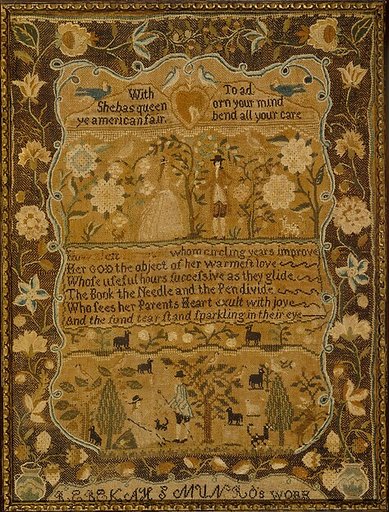 With To ad
Shebas queen orn your mind
ye american fair bend all your care
whom circling years improve
Her GOD the object of her warmest love
Whose useful hours successive as they glide
The Book the Needle and the Pen divide
Who sees her Parents Heart exult with joy
And the fond tear stand sparkling in their eye
REBEKAH S MUNROs WORK